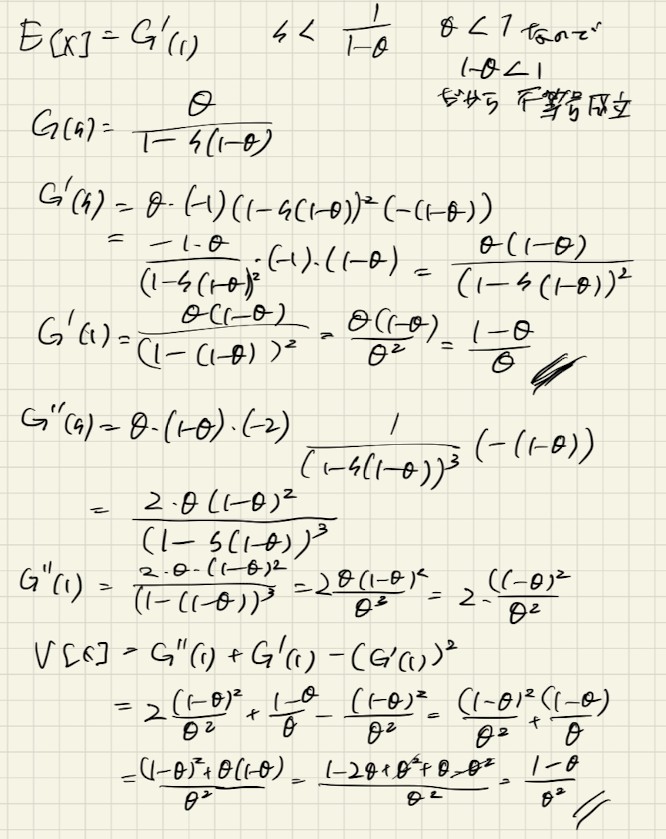 E[X] = G'(1)   s < 1/(1-θ)   θ < 1 なので
1-θ < 1
だから 不等号成立
G(s) = θ/(1-s(1-θ))
G'(s) = θ·(-1)(1-s(1-θ))^-2(-(1-θ))
= -1·θ/(1-s(1-θ))^2·(-1)·(1-θ) = θ(1-θ)/(1-s(1-θ))^2
G'(1) = θ(1-θ)/(1-(1-θ))^2 = θ(1-θ)/θ^2 = (1-θ)/θ
G''(s) = θ·(1-θ)·(-2) 1/(1-s(1-θ))^3 (-(1-θ))
= 2·θ(1-θ)^2/(1-s(1-θ))^3
G''(1) = 2·θ·(1-θ)^2/(1-(1-θ))^3 = 2θ(1-θ)^2/θ^3 = 2·(1-θ)^2/θ^2
V[X] = G''(1) + G'(1) - (G'(1))^2
= 2(1-θ)^2/θ^2 + (1-θ)/θ - (1-θ)^2/θ^2 = (1-θ)^2/θ^2 + (1-θ)/θ
= ((1-θ)^2+θ(1-θ))/θ^2 = (1-2θ+θ^2+θ-θ^2)/θ^2 = (1-θ)/θ^2